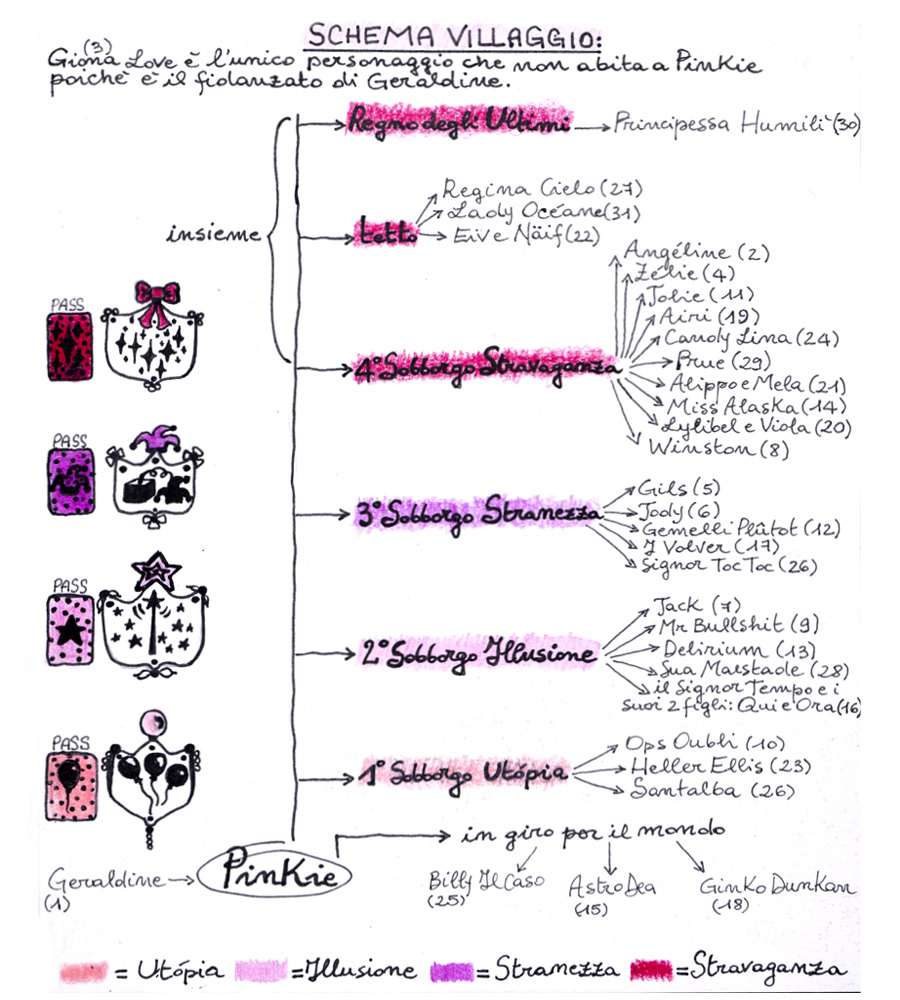 SCHEMA VILLAGGIO:
(3)
Giona Love è l'unico personaggio che non abita a PinKie
poichè è il fidanzato di Geraldine.
Regno degli Ultimi
Principessa Humili' (30)
insieme
tetto
Regina Cielo (27)
Lady Océane (31)
Eiv e Näif (22)
4° Sobborgo Stravaganza
Angéline (2)
Zélie (4)
Jolie (11)
Airi (19)
Candy Lina (24)
Prue (29)
Alippo e Mela (21)
Miss Alaska (14)
Lylibel e Viola (20)
Winston (8)
PASS
3° Sobborgo Stranezza
Gils (5)
Jody (6)
Gemelli Plûtot (12)
I Volver (17)
Signor Toc Toc (26)
PASS
2° Sobborgo Illusione
Jack (7)
Mr Bullshit (9)
Delirium (13)
Sua Maestade (28)
il Signor Tempo e i
suoi 2 figli: Qui e Ora (16)
PASS
1° Sobborgo Utópia
Ops Oubli (10)
Heller Ellis (23)
Santalba (26)
PASS
in giro per il mondo
Billy Il Caso
(25)
Astro Dea
(15)
Ginko Dunkan
(18)
Geraldine
(1)
PinKie
= Utópia
= Illusione
= Stranezza
= Stravaganza